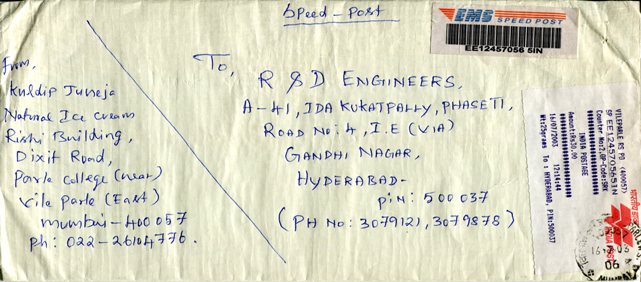 Speed-Post
EMS SPEED POST
EE12457056 5IN
From,
Kuldip Juneja
Natural Ice cream
Rishi Building,
Dixit Road,
Parle College (near)
Vile Parle (East)
mumbai-400057
Ph: 022-26104776.
To,
R & D ENGINEERS,
A-41, IDA KUKATPALLY, PHASE II,
ROAD No: 4, I.E (VIA)
GANDHI NAGAR,
HYDERABAD-
PIN: 500 037
(PH No: 3079121, 3079878)
VILEPARLE RS PO (400057)
SP EE124570565IN
Counter No:2,OP-Code:SRK
INDIA POSTAGE
Amount:Rs30.00
16/07/2003 12:13:44
Wt:25grams To : HYDERABAD, PIN:500037